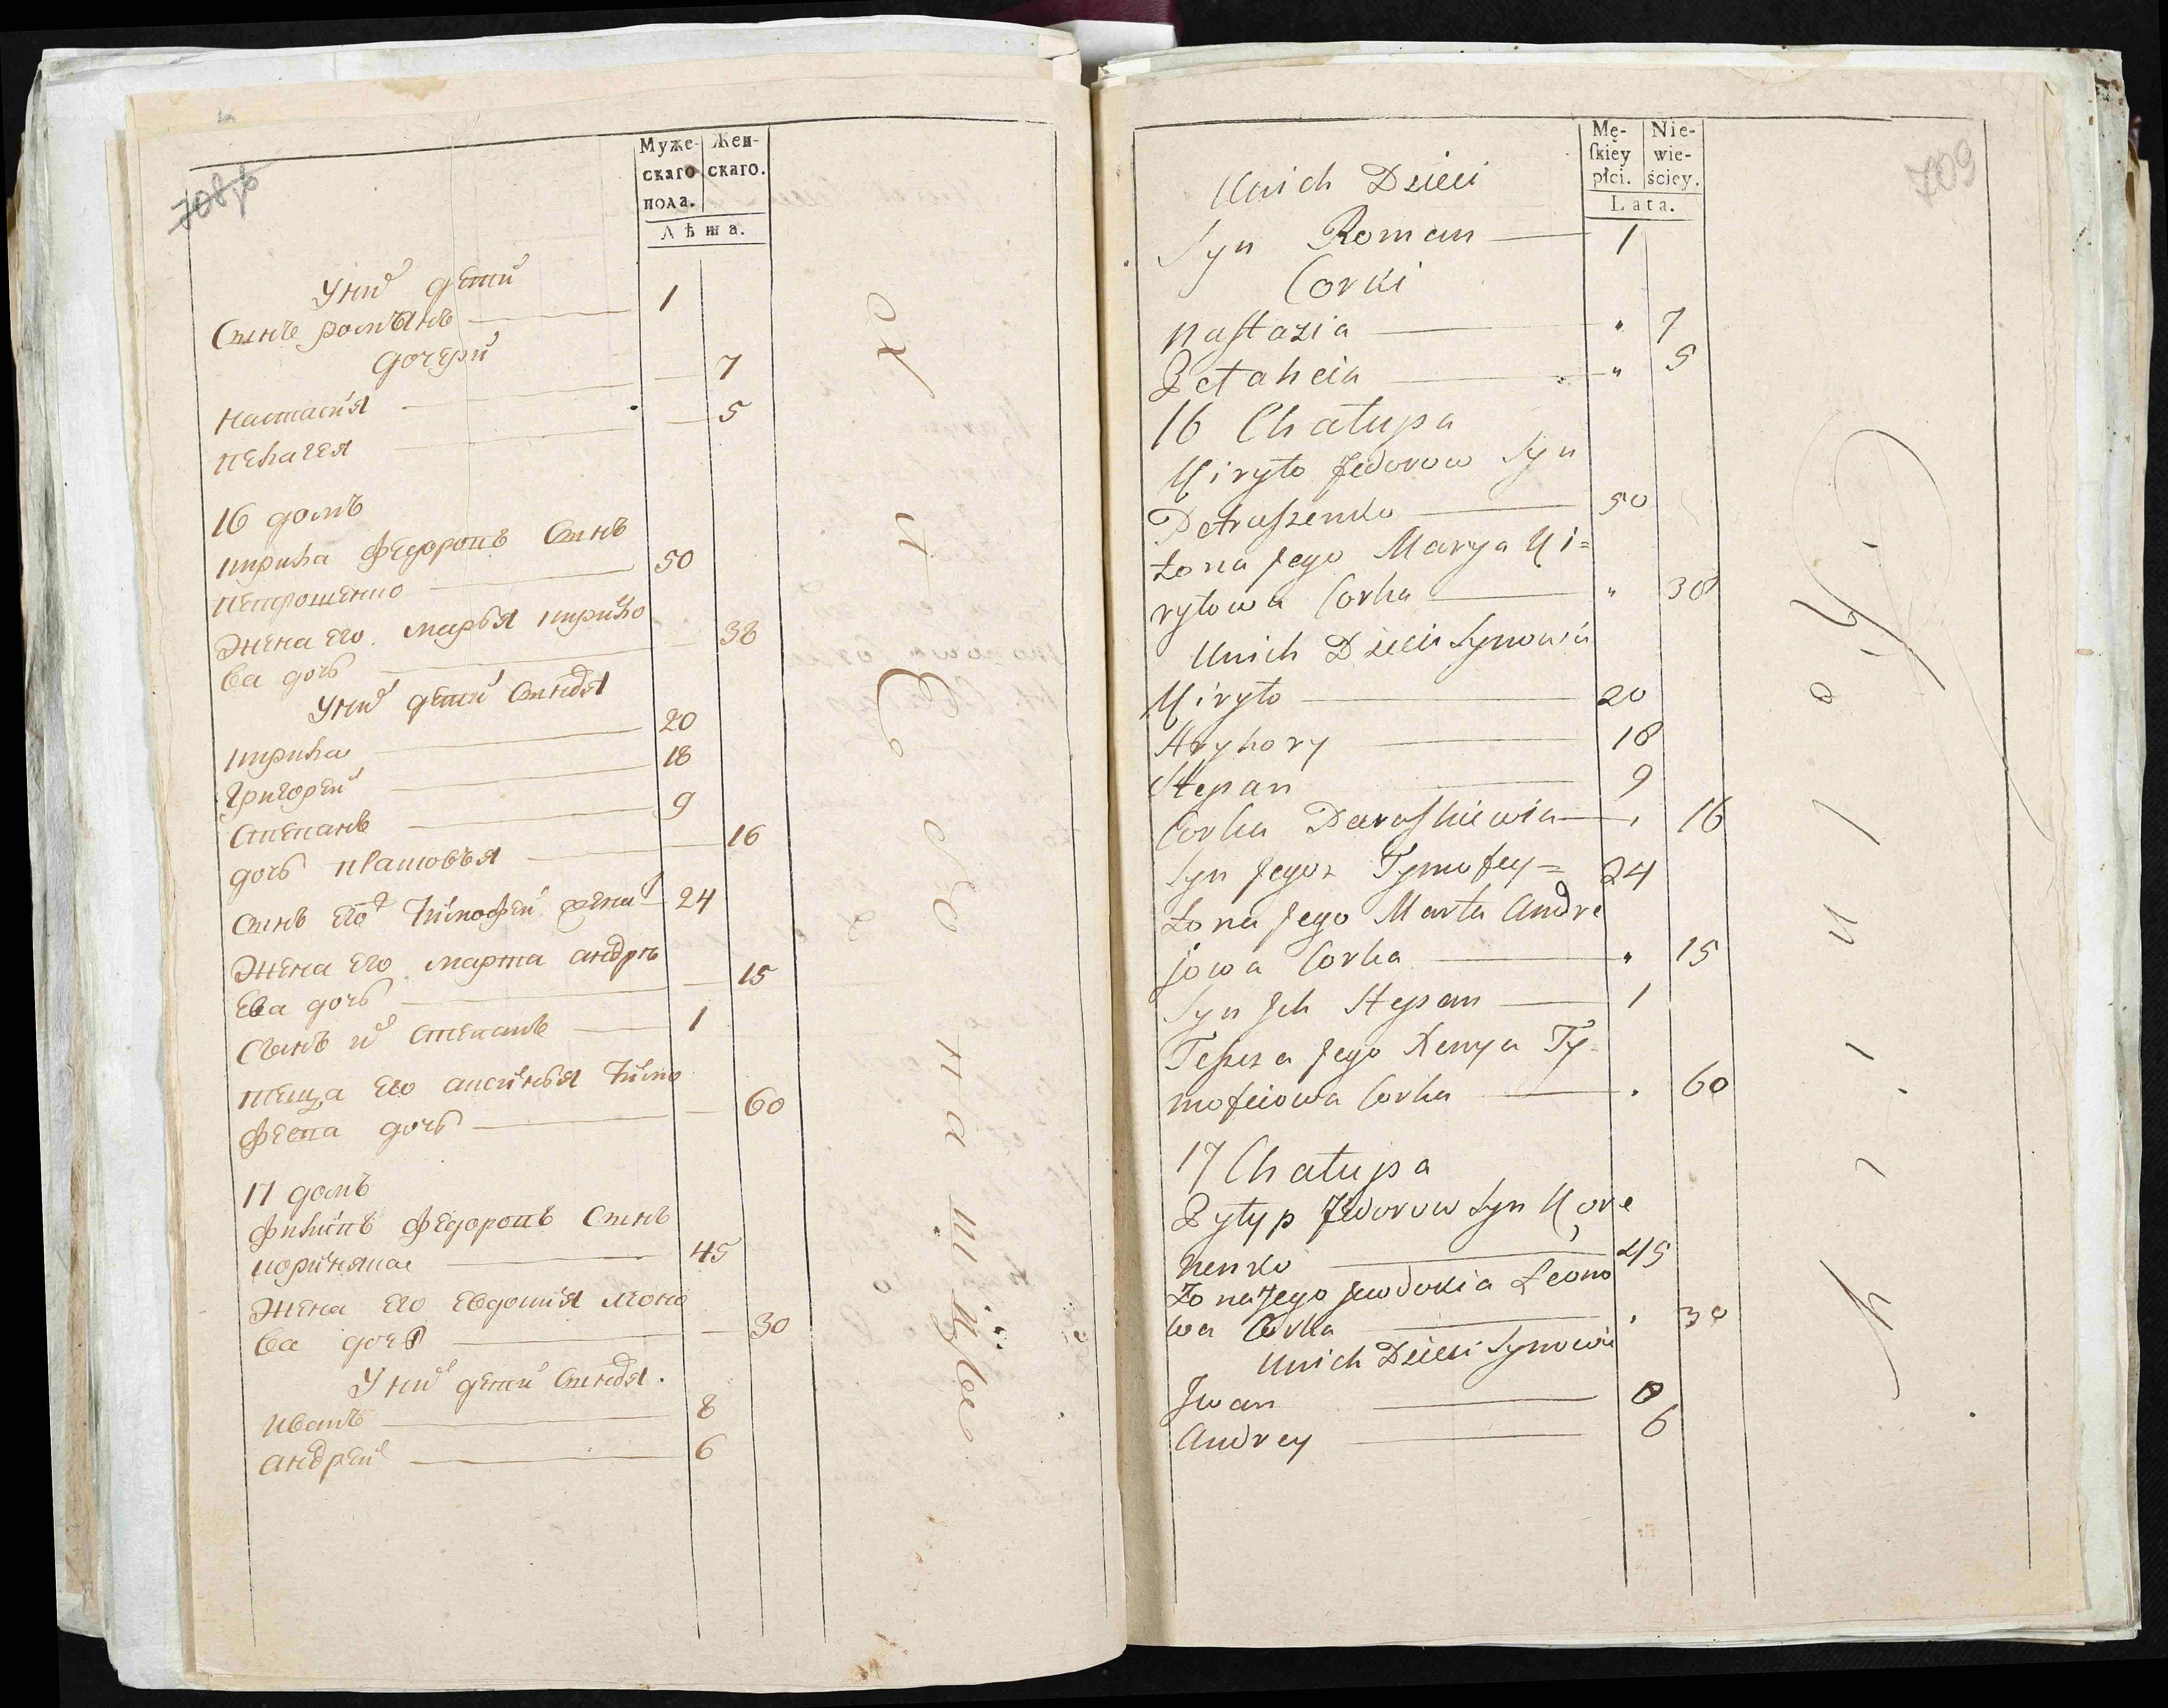 708
Муже-
скаго
пола.
Жен-
скаго.
Лѣта.
У них дети
Сынъ романъ 1
дочери
Настасия 7
пелагея 5
16 домъ
кирила федоровъ Сынъ
петрошенко 50
Жена его марья кирило
ва дочь 38
У них дети Сыновя
кирила 20
Григорей 18
Степанъ 9
дочь 16
Сынъ его Тимофей 24
Жена его марта андре
ева дочь 15
Сынъ их Степанъ 1
теща его аксинья Тимо
феева дочь 60
17 домъ
филипъ федоровъ Сынъ
45
Жена его евдокия леоно
ва дочь 30
У них дети Сыновя
иванъ 8
андрей 6
709
Mę-
ſkiey
płci.
Nie-
wie-
ściey.
Lata.
Unich Dzieci
Syn Roman 1
Corki
Naſtazia " 7
Petaheia " 5
16 Chałupa
Kiryło Fedorow Syn
Petraſzenko 50
Żona Jego Marya Ki=
ryłowa Corka " 38
Unich Dzieci Synowie
Kiryło 20
Hryhory 18
Stepan 9
Corka Paraſkiewia " 16
Syn Jego 2 Tymofey= 24
Żona Jego Marta Andre
jowa Corka " 15
Syn Jch Stepan 1
Teſzcza Jego Xenya Ty-
mofeiowa Corka " 60
17 Chałupa
Pyłyp Fedorow Syn Kore
nenko 45
Żona Jego Jewdokia Leono
wa Corka " 30
Unich Dzieci Synowie
Jwan 8
Andrey 6